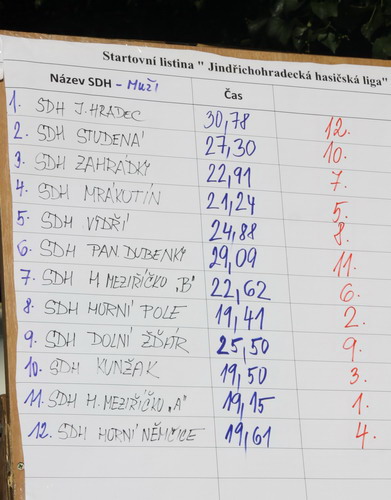 Startovní listina " Jindřichohradecká hasičská liga"
Název SDH - Muži Čas
1. SDH J. HRADEC 30,78 12.
2. SDH STUDENÁ 27,30 10.
3. SDH ZAHRÁDKY 22,91 7.
4. SDH MRÁKOTÍN 21,24 5.
5. SDH VYDŘÍ 24,88 8.
6. SDH PAN. DUBENKY 29,09 11.
7. SDH H. MEZIŘÍČKO „B" 22,62 6.
8. SDH HORNÍ POLE 19,41 2.
9. SDH DOLNÍ ŽĎÁR 25,50 9.
10. SDH KUNŽAK 19,50 3.
11. SDH H. MEZIŘÍČKO „A" 19,15 1.
12. SDH HORNÍ NĚMČICE 19,61 4.